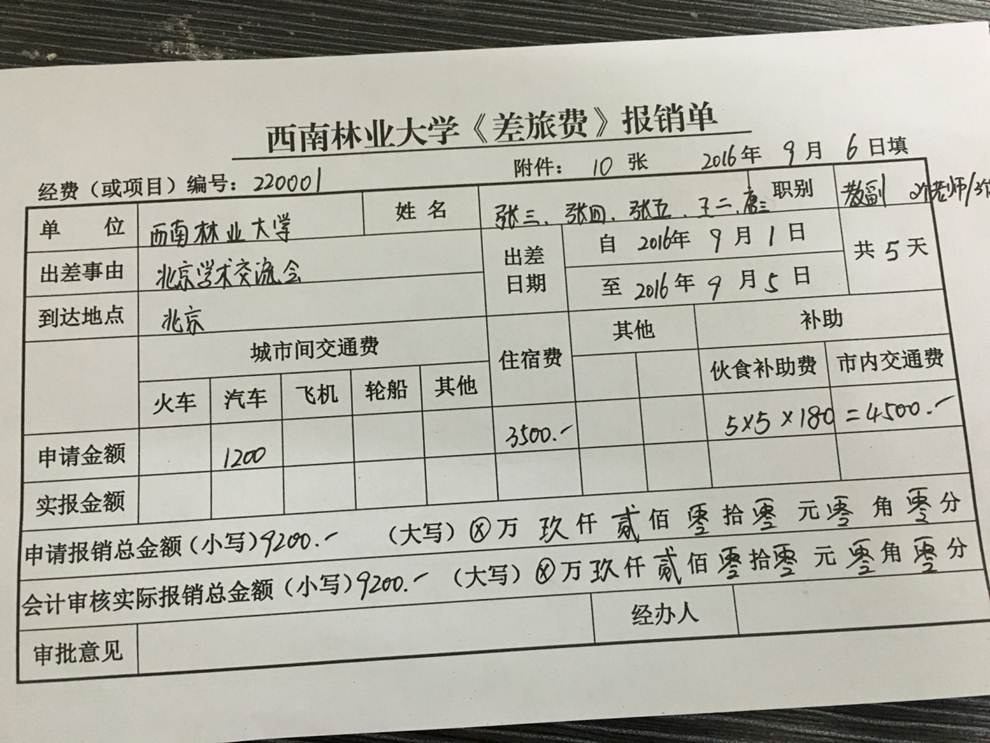 西南林业大学《差旅费》报销单
经费（或项目）编号：220001 附件：10 张 2016年 9 月 6 日填
单 位 西南林业大学 姓 名 张三、张四、张五、王二、唐三 职别 教副 老师/
出差事由 北京学术交流会 出差日期 自 2016年 9 月 1 日 共 5 天
到达地点 北京 至 2016年 9 月 5 日
城市间交通费 住宿费 其他 补助
火车 汽车 飞机 轮船 其他 伙食补助费 市内交通费
申请金额 1200 3500.- 5×5×180 =4500.-
实报金额
申请报销总金额（小写）9200.- （大写）ⓧ万 玖仟 贰佰 零拾零 元零 角 零分
会计审核实际报销总金额（小写）9200.- （大写）ⓧ万玖仟 贰佰 零拾零 元 零角 零分
审批意见 经办人